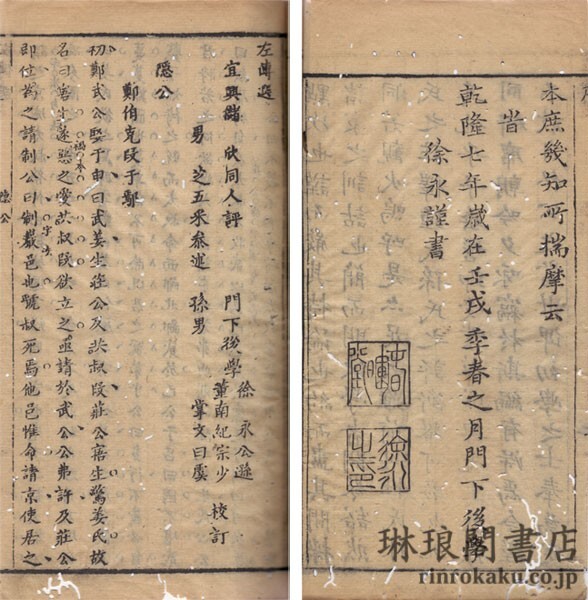 本庶幾知所揣摩云
旹
乾隆七年歲在壬戌季春之月門下後學
徐永謹書
徐永之印
左傳選
宜興儲 欣同人評 門下後學 徐永公遜 董南紀宗少 校訂
男 芝五采參述 孫男 掌文曰虞
隱公
鄭伯克段于鄢
初鄭武公娶于申曰武姜生莊公及共叔段莊公寤生驚姜氏故
禍本
名曰寤生遂惡之愛共叔段欲立之亟請於武公公弗許及莊公
字法
即位為之請制公曰制巖邑也虢叔死焉他邑惟命請京使居之
隱公
琳琅閣書店
rinrokaku.co.jp